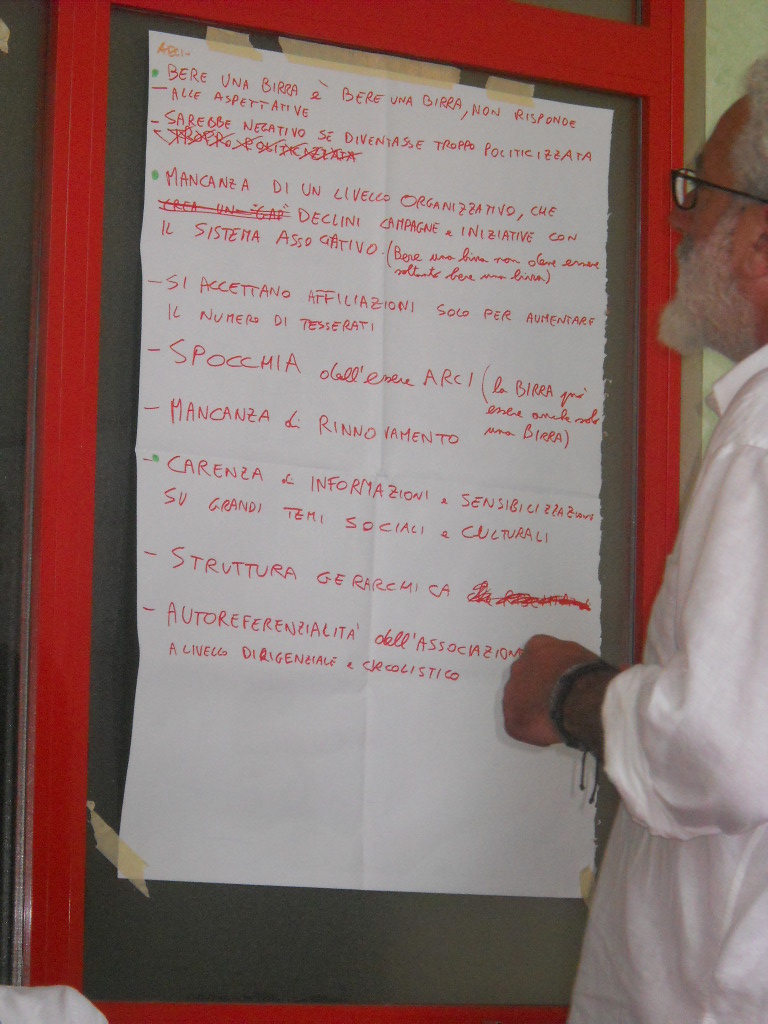 ARCI-
• BERE UNA BIRRA È BERE UNA BIRRA, NON RISPONDE
- ALLE ASPETTATIVE
- SAREBBE NEGATIVO SE DIVENTASSE TROPPO POLITICIZZATA
• MANCANZA DI UN LIVELLO ORGANIZZATIVO, CHE
CREA UN "GAP" DECLINI CAMPAGNE e INIZIATIVE CON
IL SISTEMA ASSOCIATIVO. (Bere una birra non deve essere
soltanto bere una birra)
- SI ACCETTANO AFFILIAZIONI SOLO PER AUMENTARE
IL NUMERO DI TESSERATI
- SPOCCHIA dell'essere ARCI (la BIRRA può
essere anche solo
una BIRRA)
- MANCANZA di RINNOVAMENTO
- CARENZA di INFORMAZIONI e SENSIBILIZZAZIONI
SU GRANDI TEMI SOCIALI e CULTURALI
- STRUTTURA GERARCHICA
- AUTOREFERENZIALITÀ dell'ASSOCIAZION
A LIVELLO DIRIGENZIALE e CIRCOLISTICO